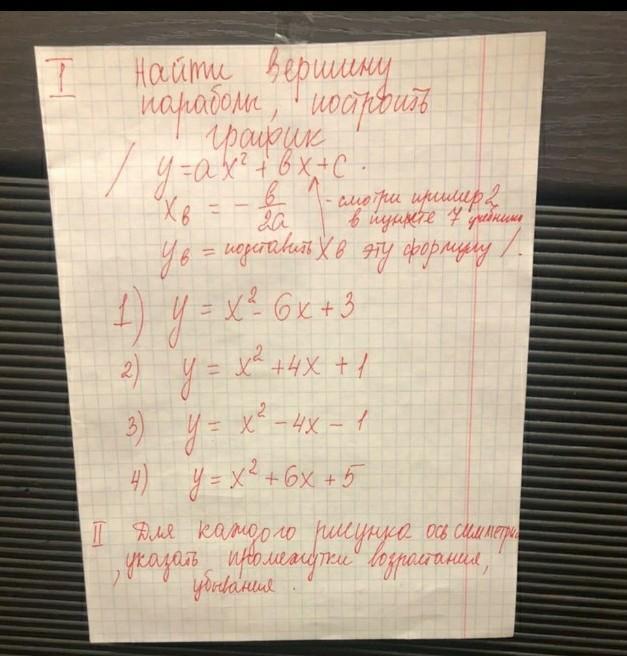 I Найти вершину
параболы, построить
график
/ y = ax² + bx + c.
x_в = - b/2a - смотри пример 2
в пункте 7 учебника
y_в = подставить x_в эту формулу /.
1) y = x² - 6x + 3
2) y = x² + 4x + 1
3) y = x² - 4x - 1
4) y = x² + 6x + 5
II Для каждого рисунка ось симметрии
, указать промежутки возрастания,
убывания.